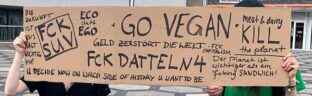 ZUKUNFT
FCK
SUV
ECO
statt
EGO
· GO VEGAN ·
meat & dairy
KILL
the planet
GELD ZERSTÖRT DIE WELT
FCK
FCK DATTELN4
Der Planet ist
wichtiger als ein
fucking SANDWICH!
U DECIDE NOW ON WHICH SIDE OF HISTORY U WANT TO BE